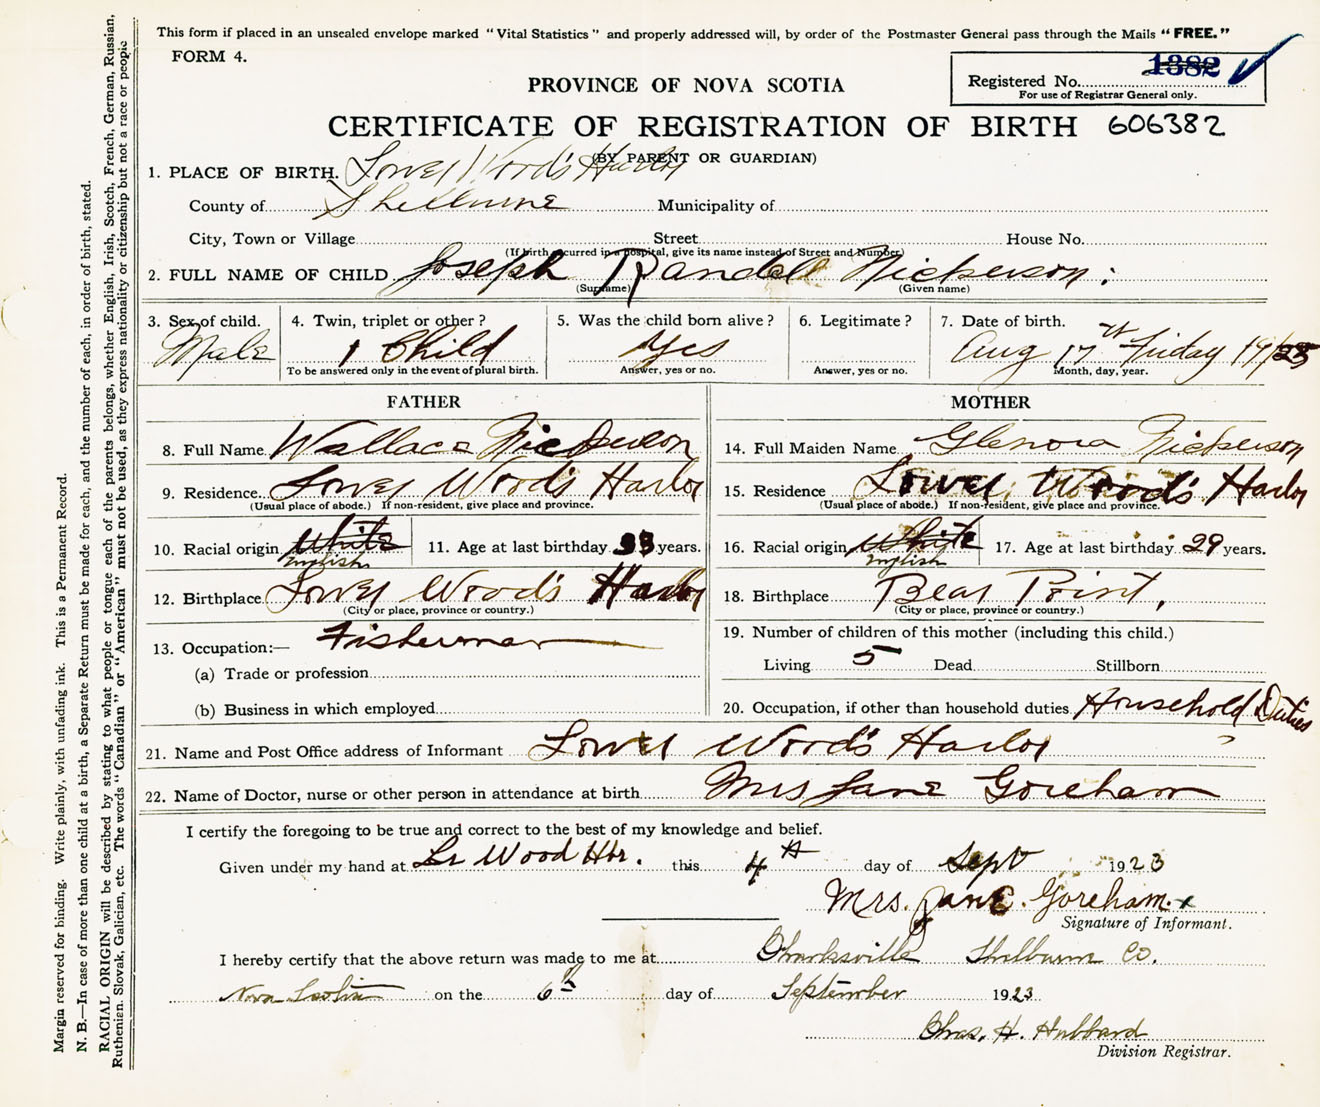 This form if placed in an unsealed envelope marked "Vital Statistics" and properly addressed will, by order of the Postmaster General pass through the Mails "FREE."
FORM 4.
Registered No. 1382
For use of Registrar General only.
PROVINCE OF NOVA SCOTIA
CERTIFICATE OF REGISTRATION OF BIRTH 606382
(BY PARENT OR GUARDIAN)
1. PLACE OF BIRTH. Lower Wood's Harbor
County of Shelburne Municipality of
City, Town or Village Street House No.
(If birth occurred in a hospital, give its name instead of Street and Number)
2. FULL NAME OF CHILD Joseph Randell Nickerson
(Surname) (Given name)
3. Sex of child. 4. Twin, triplet or other? 5. Was the child born alive? 6. Legitimate? 7. Date of birth.
Male 1 Child Yes Aug 17th Friday 19/23
To be answered only in the event of plural birth. Answer, yes or no. Answer, yes or no. Month, day, year.
FATHER
8. Full Name. Wallace Nickerson
9. Residence. Lower Wood's Harbor
(Usual place of abode.) If non-resident, give place and province.
10. Racial origin White English 11. Age at last birthday 33 years.
12. Birthplace Lower Wood's Harbor
(City or place, province or country.)
13. Occupation:— Fisherman
(a) Trade or profession
(b) Business in which employed
MOTHER
14. Full Maiden Name Glenora Nickerson
15. Residence Lower Wood's Harbor
(Usual place of abode.) If non-resident, give place and province.
16. Racial origin White English 17. Age at last birthday 29 years.
18. Birthplace Bear Point,
(City or place, province or country.)
19. Number of children of this mother (including this child.)
Living 5 Dead Stillborn
20. Occupation, if other than household duties Household Duties
21. Name and Post Office address of Informant Lower Wood's Harbor
22. Name of Doctor, nurse or other person in attendance at birth Mrs Jane Goreham
I certify the foregoing to be true and correct to the best of my knowledge and belief.
Given under my hand at Lr Wood Hbr. this 4th day of Sept 1923
Mrs. Jane. Goreham. x
Signature of Informant.
I hereby certify that the above return was made to me at Charksville Shelburne Co.
Nova Scotia on the 6th day of September 1923
Chas. H. Hubbard
Division Registrar.
Margin reserved for binding. Write plainly, with unfading ink. This is a Permanent Record.
N. B.—In case of more than one child at a birth, a Separate Return must be made for each, and the number of each, in order of birth, stated.
RACIAL ORIGIN will be described by stating to what people or tongue each of the parents belongs, whether English, Irish, Scotch, French, German, Russian,
Ruthenian, Slovak, Galician, etc. The words "Canadian" or "American" must not be used, as they express nationality or citizenship but not a race or people